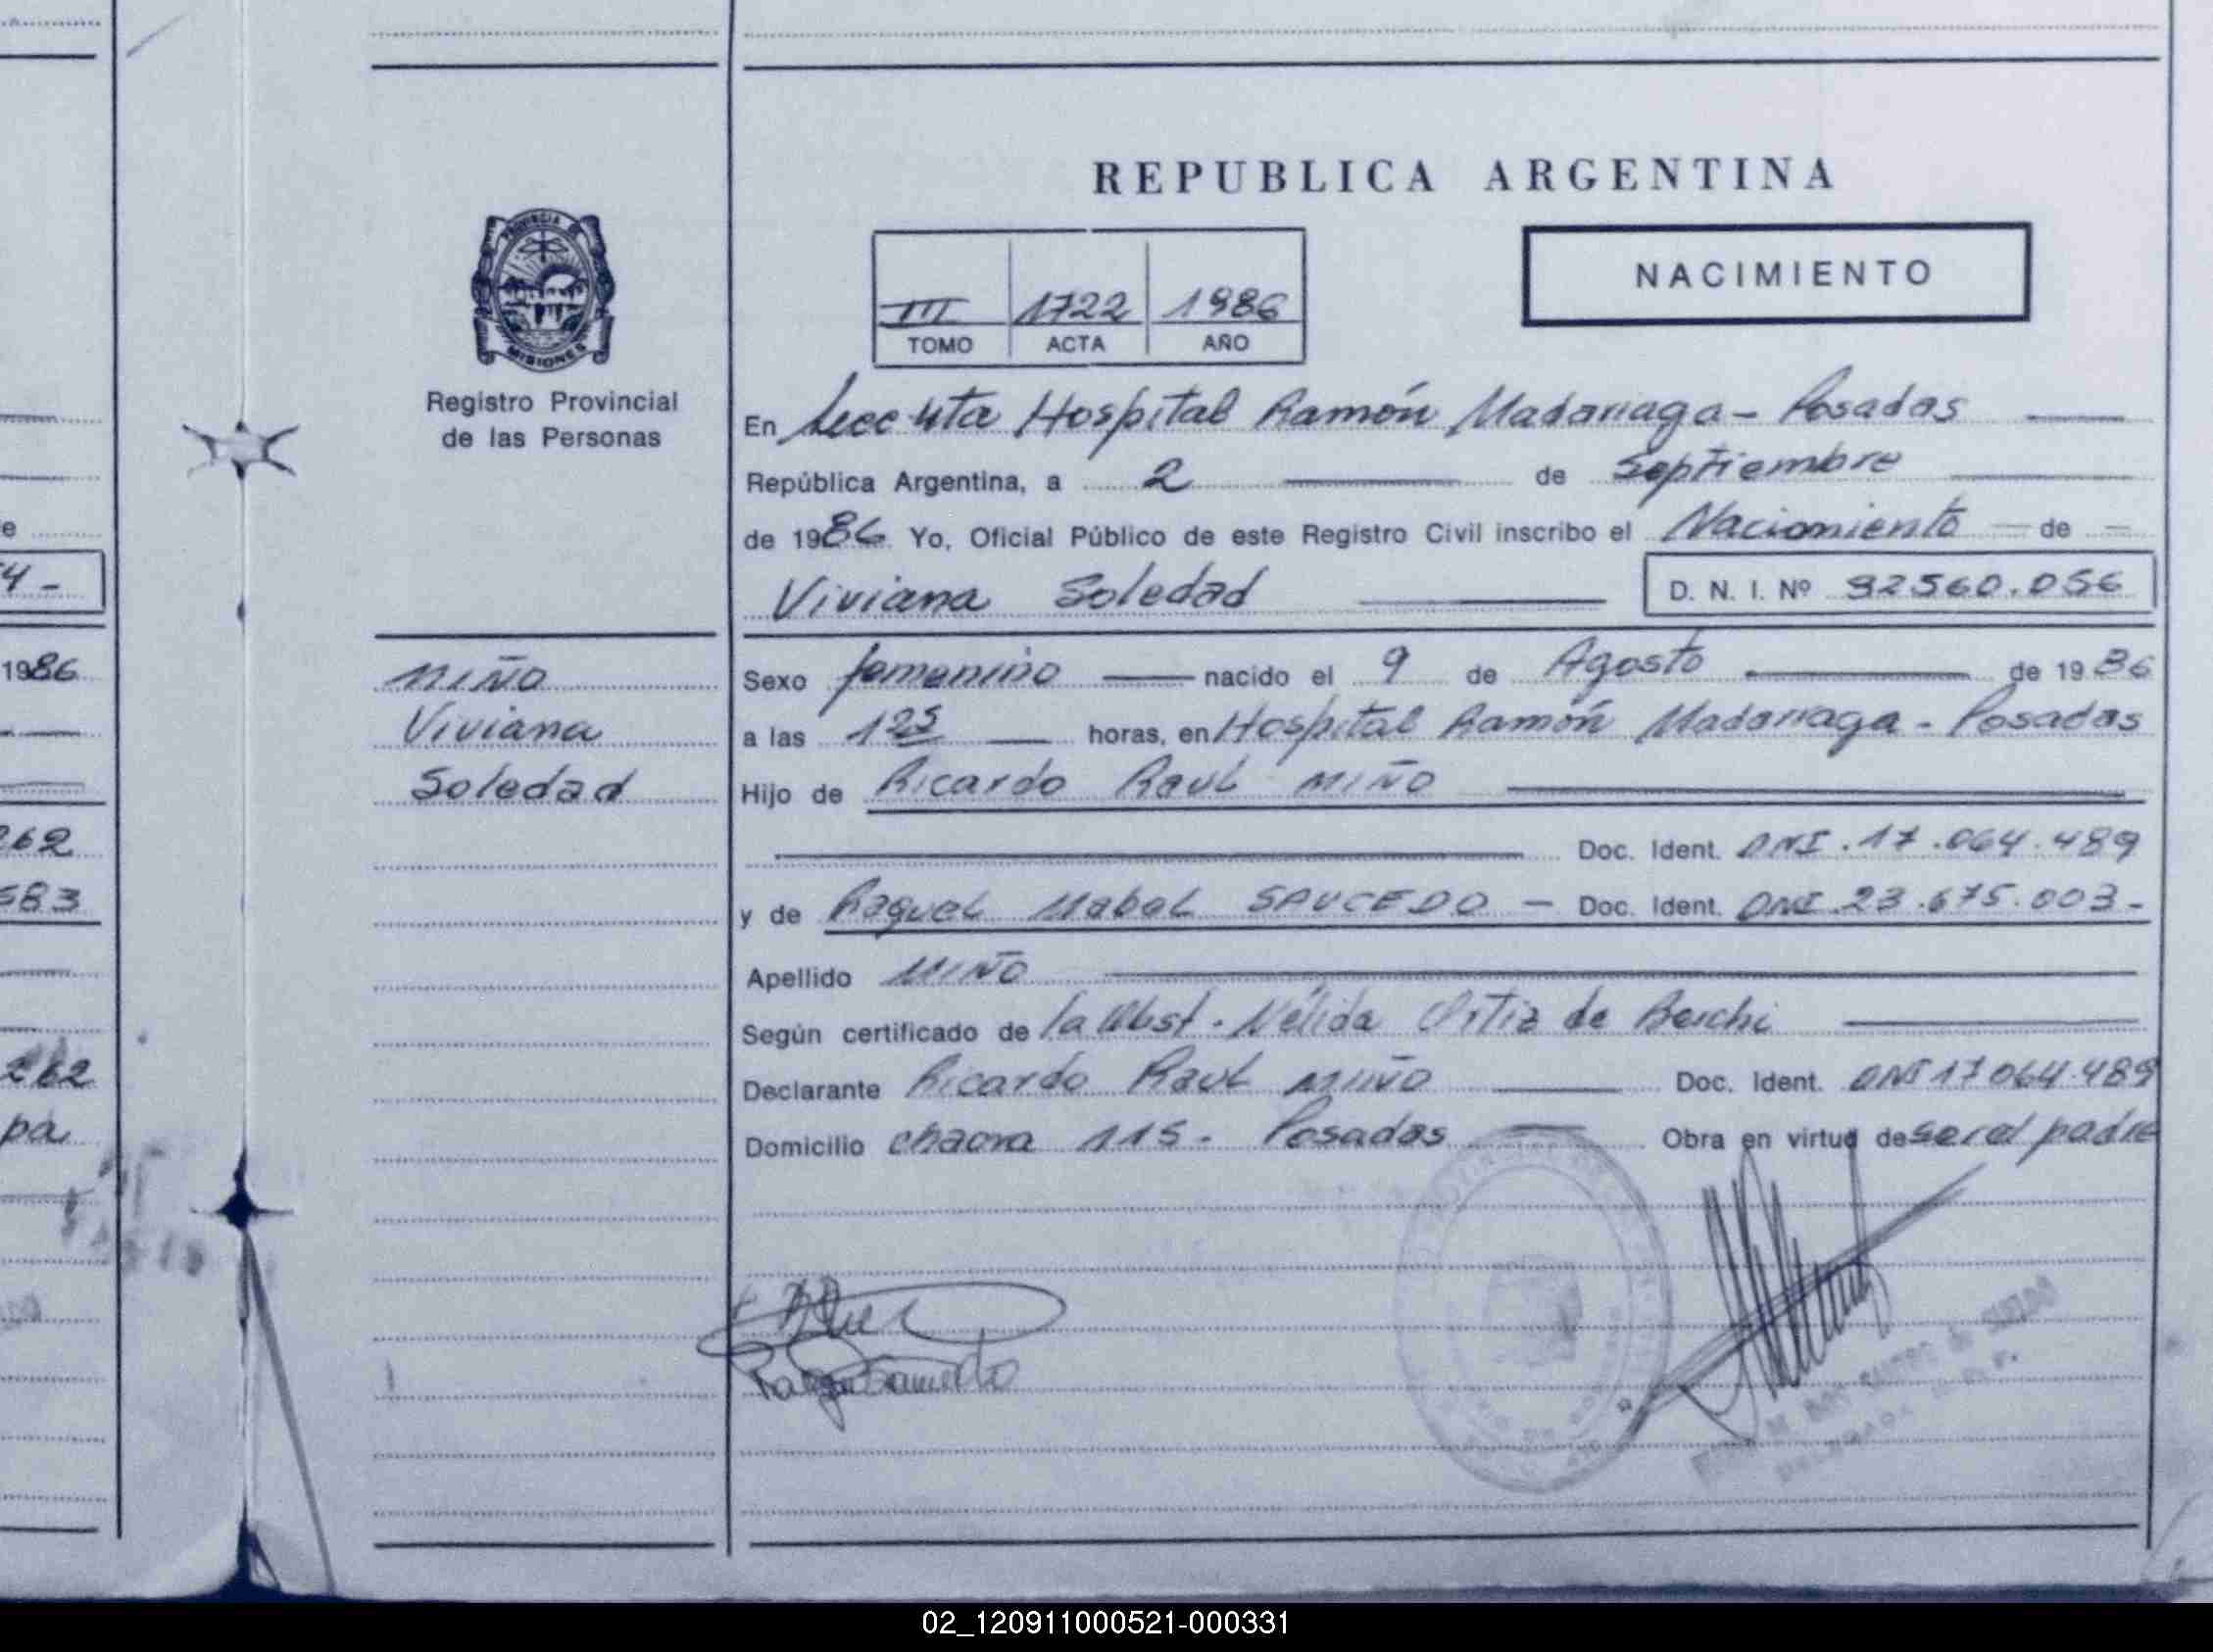 REPUBLICA ARGENTINA
PROVINCIA DE
MISIONES
Registro Provincial
de las Personas
III 1722 1986
TOMO ACTA AÑO
NACIMIENTO
En Secc 4ta Hospital Ramón Madariaga - Posadas
República Argentina, a 2 de Septiembre
de 1986 Yo, Oficial Público de este Registro Civil inscribo el Nacimiento de
Viviana Soledad D. N. I. Nº 32560.056
MIÑO
Viviana
Soledad
Sexo femenino nacido el 9 de Agosto de 1986
a las 1 25 horas, en Hospital Ramón Madariaga - Posadas
Hijo de Ricardo Raul MIÑO
Doc. Ident. DNI. 17.064.489
y de Raquel Mabel SAUCEDO - Doc. Ident. DNI 23.675.003-
Apellido MIÑO
Según certificado de la Obst. Nélida Ortiz de
Declarante Ricardo Raul MIÑO Doc. Ident. DNI 17 064.489
Domicilio chacra 115 - Posadas Obra en virtud de ser el padre
4-
1986
262
583
262
pa
02_120911000521-000331